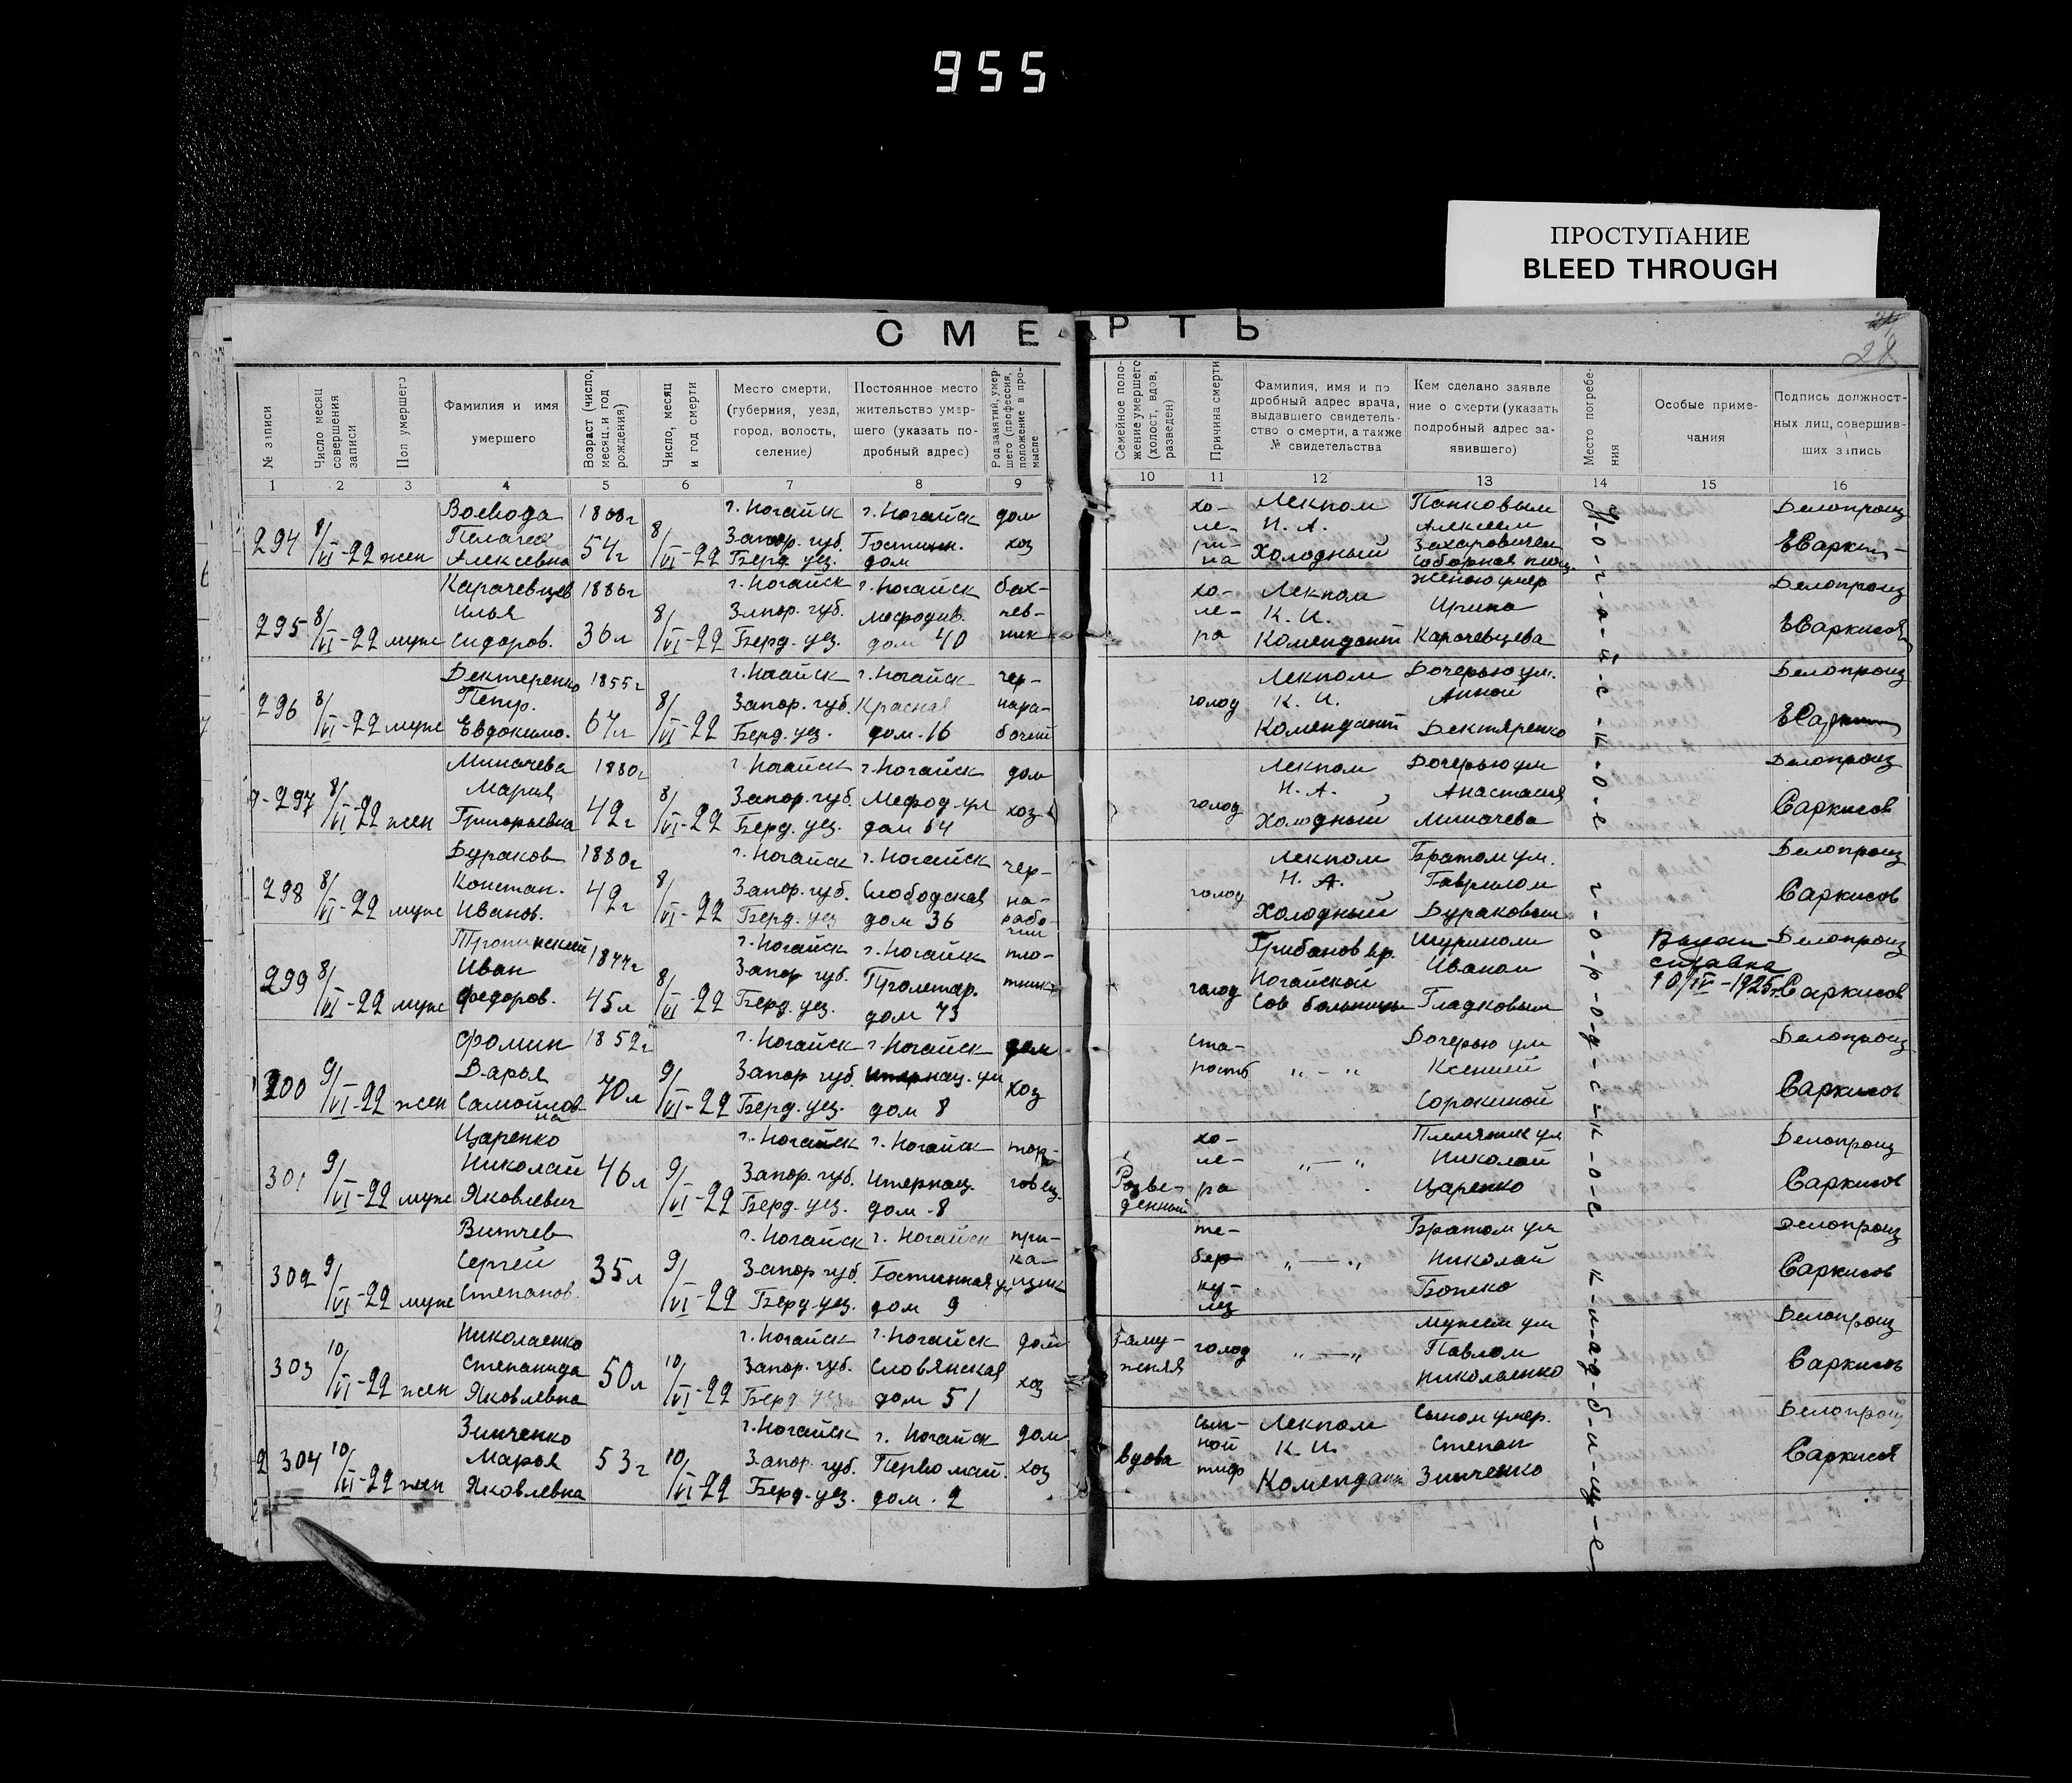 955
ПРОСТУПАНИЕ
BLEED THROUGH
СМЕРТЬ
28
№ записи
Число месяц совершения записи
Пол умершего
Фамилия и имя умершего
Возраст (число, месяц и год рождения)
Число, месяц и год смерти
Место смерти, (губерния, уезд, город, волость, селение)
Постоянное место жительство умершего (указать подробный адрес)
Род занятий, умершего (профессия, положение в промысле
Семейное положение умершего (холост, вдов, разведен)
Причина смерти
Фамилия, имя и подробный адрес врача, выдавшего свидетельство о смерти, а также № свидетельства
Кем сделано заявление о смерти (указать подробный адрес заявившего)
Место погребения
Особые примечания
Подпись должностных лиц, совершивших запись
1 2 3 4 5 6 7 8 9 10 11 12 13 14 15 16
294 8/VI-22 жен Воевода Пелагея Алексевна 1868г 54г 8/VI-22 г. Ногайск Запор. губ. Берд. уез. г. Ногайск Гостинн. дом дом хоз
хо-ле-ри-на Лекпом Н. А. Холодный Панковым Алексеем Захаровичем Соборная площ Делопроиз
295 8/VI-22 муж Карачевцев Илья Сидоров. 1886г 36л 8/VI-22 г. Ногайск Запор. губ. Берд. уез. г. Ногайск мефодив. дом 40 бах-чев-ник
хо-ле-ра Лекпом К. И. Комендант женою умер Ирина Карачевцева Делопроиз ЕСаркисов
296 8/VI-22 муж Дектеренко Петр. Евдокимо. 1855г 67л 8/VI-22 г. Ногайск Запор. губ. Берд. уез. г. Ногайск Красная дом. 16 чер-нора-бочий
голод Лекпом К. И. Комендант Дочерью ум. Анной Дектяренко Делопроиз
297 8/VI-22 жен Миначева Мария Григорьевна 1880г 42г 8/VI-22 г. Ногайск Запор. губ. Берд. уез. г. Ногайск Мефод. ул дом 64 дом хоз
голод Лекпом Н. А. Холодный Дочерью ум Анастасия Миначева Делопроиз Саркисов
298 8/VI-22 муж Бураков Констан. Иванов. 1880г 42г 8/VI-22 г. Ногайск Запор. губ. Берд. уез г. Ногайск Слободская дом 36 чер-но-рабо-чий
голод Лекпом Н. А. Холодный Братом ум. Гаврилом Бураковым Делопроиз Саркисов
299 8/VI-22 муж Иван Федоров. 1877г 45л 8/VI-22 г. Ногайск Запор губ. Берд. уез. г. Ногайск Пролетар. дом 73
голод Грибанов вр. Ногайской Сов больницы Шурином Иваном Гладковым Выдан справка 10/IV-1925г Делопроиз Саркисов
300 9/VI-22 жен Фомин Дарья Самойлов-на 1852г 70л 9/VI-22 г. Ногайск Запор губ. Берд. уез. г. Ногайск Интернац. ул дом 8 дом хоз
ста-рость „ — „ Дочерью ум Ксенией Сорокиной Делопроиз Саркисов
301 9/VI-22 муж Царенко Николай Яковлевич 46л 9/VI-22 г. Ногайск Запор. губ. Берд. уез. г. Ногайск Интернац. дом - 8 тор-говец.
Разве-денный хо-ле-ра „ — „ Племяник ум Николай Царенко Делопроиз Саркисов
302 9/VI-22 муж Витчев Сергей Степанов. 35л 9/VI-22 г. Ногайск Запор губ. Берд. уез. г. Ногайск Гостинная ул дом 9 при-ка-щик
те-бер-ку-лез „ — „ Братом ум Николай Делопроиз Саркисов
303 10/VI-22 жен Николаенко Степанида Яковлевна 50л 10/VI-22 г. Ногайск Запор. губ. Берд уез г. Ногайск Словянская дом 51 дом хоз
Заму-жняя голод „ — „ мужем ум Павлом Николаенко Делопроиз Саркисов
304 10/VI-22 жен Зинченко Марья Яковлевна 53г 10/VI-22 г. Ногайск Запор. губ. Берд. уез. г. Ногайск Первомай. дом. 2 дом хоз
вдова сып-ной тиф Лекпом К. И. Комендант Сыном умер. Степан Зинченко Делопроиз Саркисов
Н-о-г-а-й-с-к-о-е г-о-р-о-д-с-к-о-е к-л-а-д-б-и-щ-е